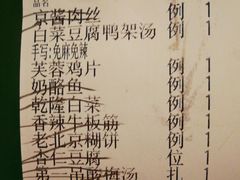 品名
京酱肉丝 例 1
白菜豆腐鸭架汤 例 1
手写:免麻免辣
芙蓉鸡片 例 1
奶酪鱼 例 1
乾隆白菜 例 1
香辣牛板筋 例 1
老北京糊饼 例 1
杏仁豆腐 位 1
扎 1